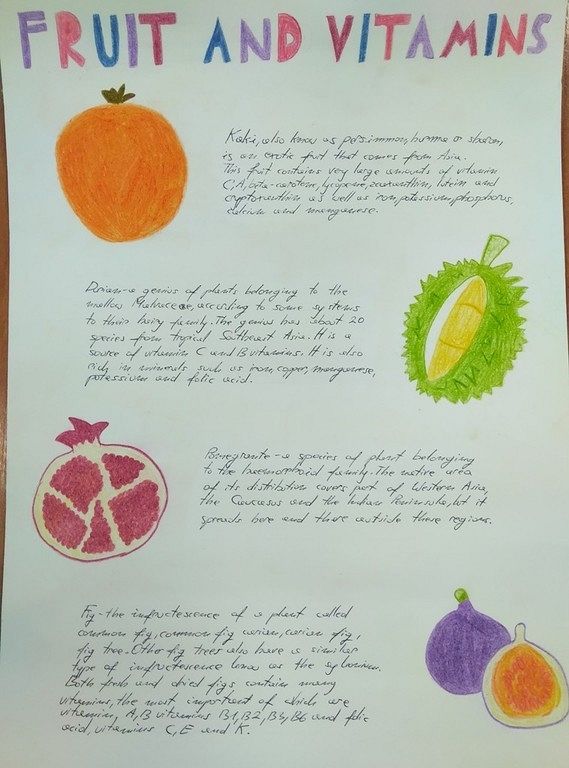 FRUIT AND VITAMINS
Kaki, also know as persimmon, hurma or sharon,
is an exotic fruit that comes from Asia.
This fruit contains very large amounts of vitamin
C, A, beta-carotene, lycopene, zeaxanthin, lutein and
cryptoxanthin as well as iron, potassium, phosphorus,
calcium and manganese.
Durian-a genius of plants belonging to the
mallow Malvaceae, according to some systems
to their hairy family. The genius has about 20
species from tropical Southeast Asia. It is a
source of vitamin C and B vitamins. It is also
rich in minerals such as iron, copper, manganese,
potassium and folic acid.
Pomegranate-a species of plant belonging
to the family. The native area
of its distribution covers part of Western Asia,
the Caucasus and the Indian Peninsula, but it
spreads here and there outside these regions.
Fig-the infructescence of a plant called
common fig, common fig carian, carian fig,
fig tree. Other fig trees also have a similar
type of infructescence know as the syconium.
Both fresh and dried figs contain many
vitamins, the most important of which are
vitamin, A, B vitamins B1, B2, B4, B6 and folic
acid, vitamins C, E and K.